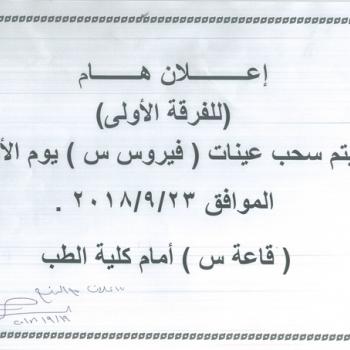 إعـــــلان هـــام
(للفرقة الأولى)
يتم سحب عينات ( فيروس س ) يوم الأ
الموافق ٢٠١٨/٩/٢٣ .
( قاعة س ) أمام كلية الطب